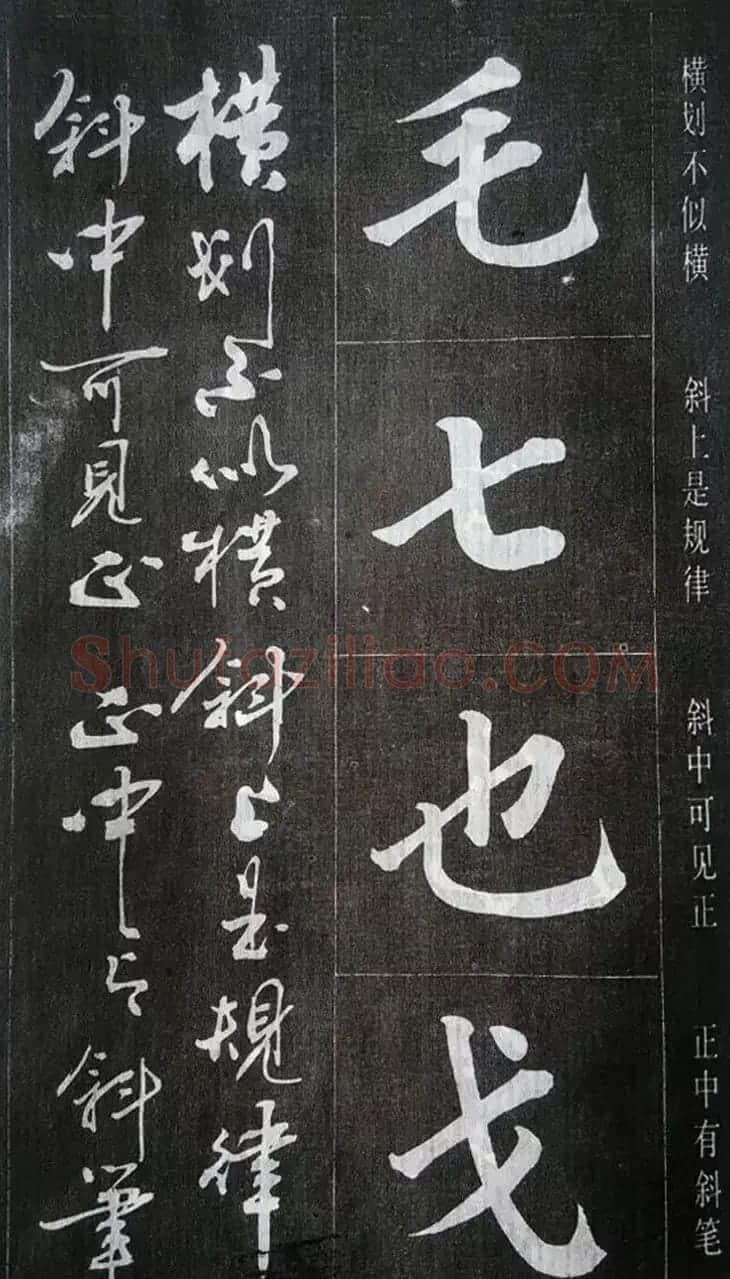 横划不似横 斜上是规律 斜中可见正 正中有斜笔
毛
七
也
戈
横划不似横 斜上是规律
斜中可见正 正中与斜笔
Shufaziliao.COM